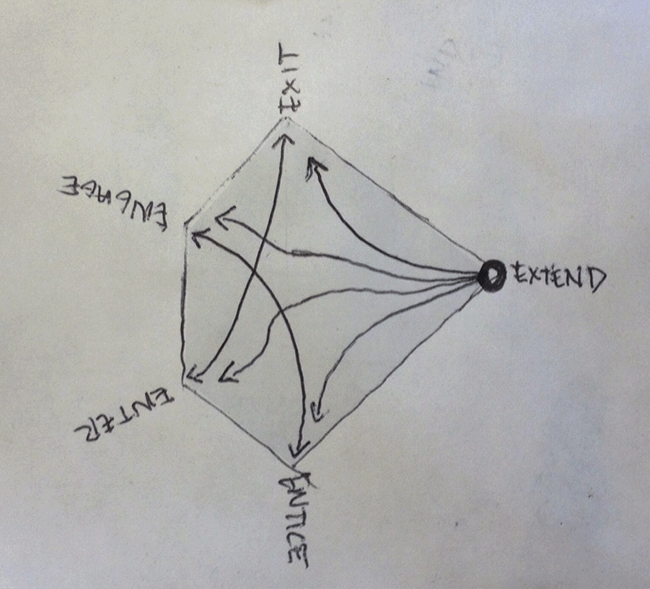 EXIT
ENGAGE
EXTEND
ENTER
ENTICE